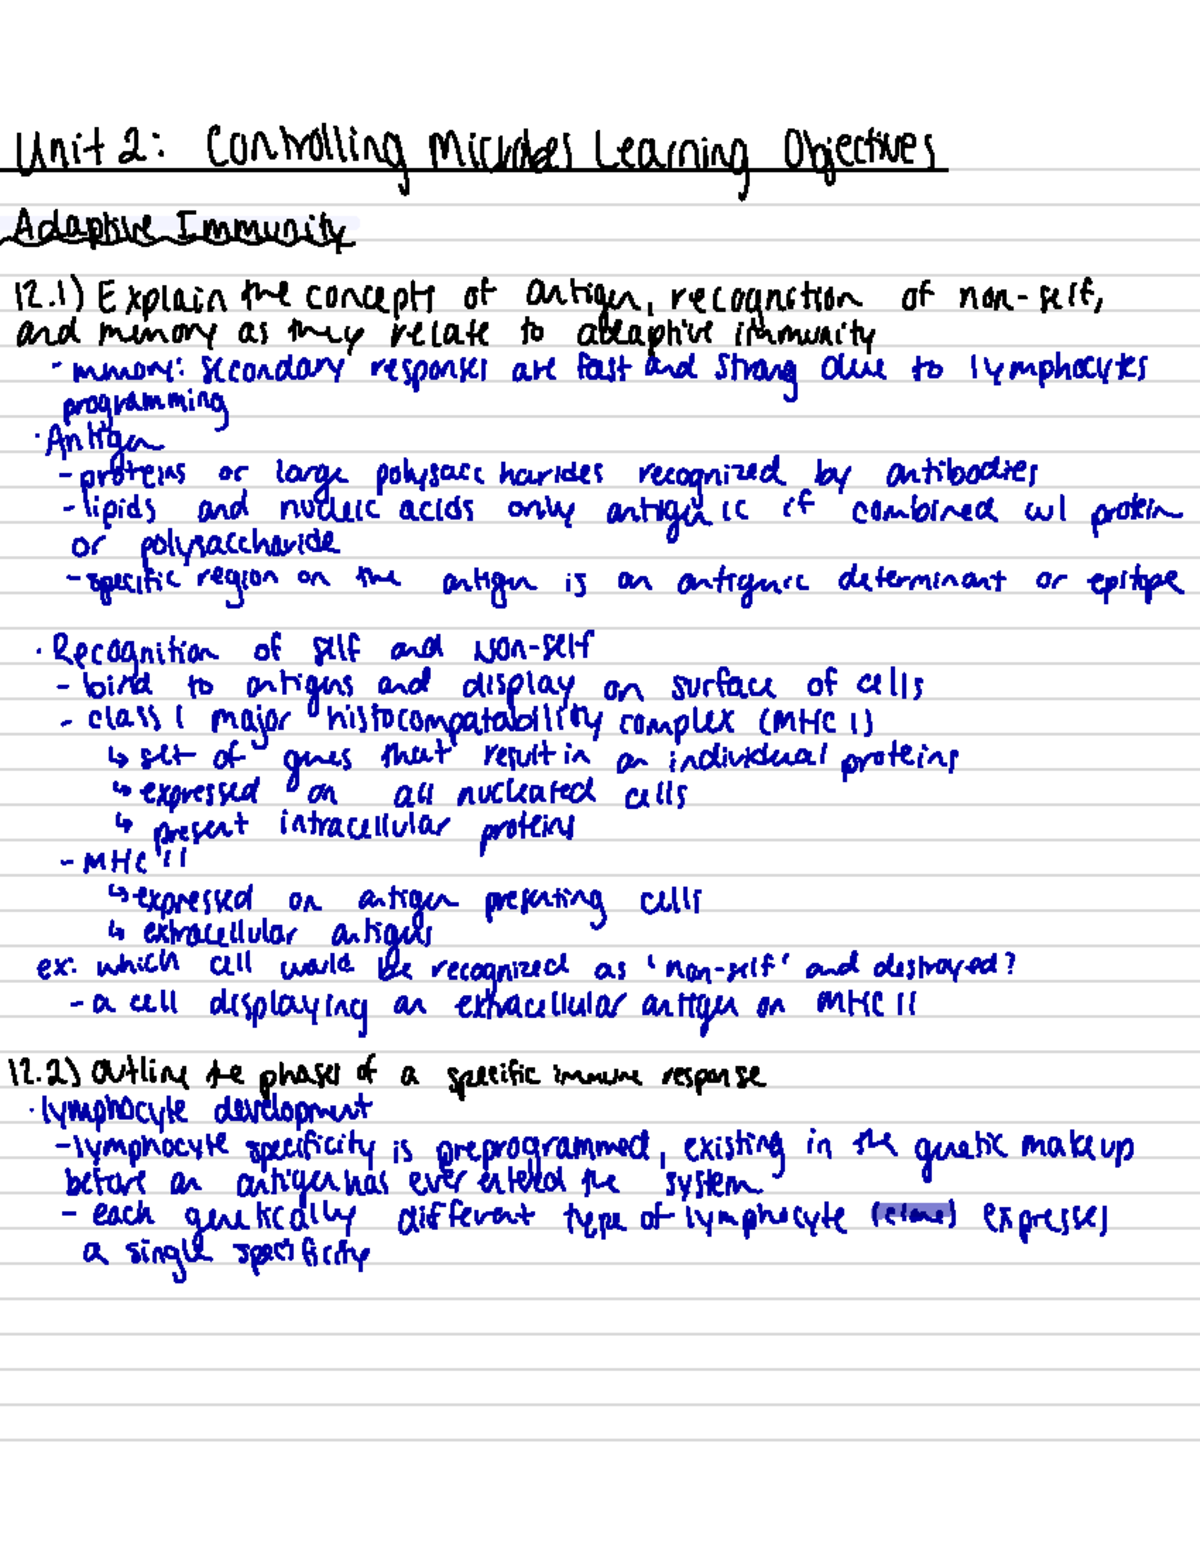 Unit 2: Controlling Microbes Learning Objectives
Adaptive Immunity
12.1) Explain the concepts of antigen, recognition of non-self,
and memory as they relate to adaptive immunity
- memory: secondary responses are fast and strong due to lymphocytes
programming
· Antigen
- proteins or large polysaccharides recognized by antibodies
- lipids and nucleic acids only antigenic if combined w/ protein
or polysaccharide
- specific region on the antigen is an antigenic determinant or epitope
· Recognition of self and non-self
- bind to antigens and display on surface of cells
- class I major histocompatability complex (MHC I)
↳ set of genes that result in an individual proteins
↳ expressed on all nucleated cells
↳ present intracellular proteins
- MHC II
↳ expressed on antigen presenting cells
↳ extracellular antigens
ex: which cell would be recognized as 'non-self' and destroyed?
- a cell displaying an extracellular antigen on MHC II
12.2) Outline the phases of a specific immune response
· lymphocyte development
- lymphocyte specificity is preprogrammed, existing in the genetic makeup
before an antigen has ever entered the system
- each genetically different type of lymphocyte (clone) expresses
a single specificity